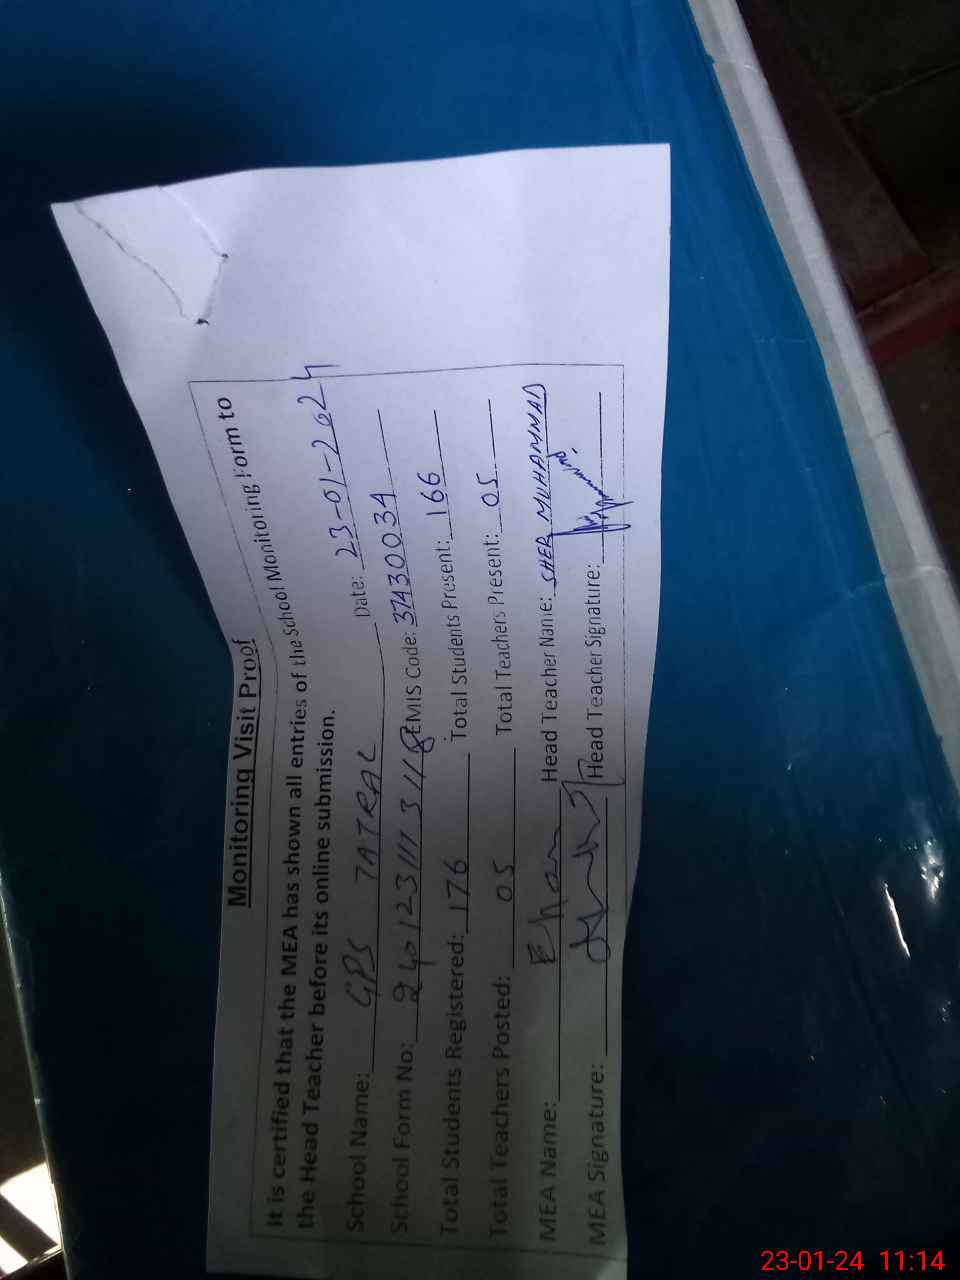 Monitoring Visit Proof
It is certified that the MEA has shown all entries of the School Monitoring Form to
the Head Teacher before its online submission.
School Name: GPS TATRAL Date: 23-01-2024
School Form No: EMIS Code: 37430034
Total Students Registered: 176 Total Students Present: 166
Total Teachers Posted: 05 Total Teachers Present: 05
MEA Name: Head Teacher Name: SHER MUHAMMAD
MEA Signature: Head Teacher Signature:
23-01-24 11:14